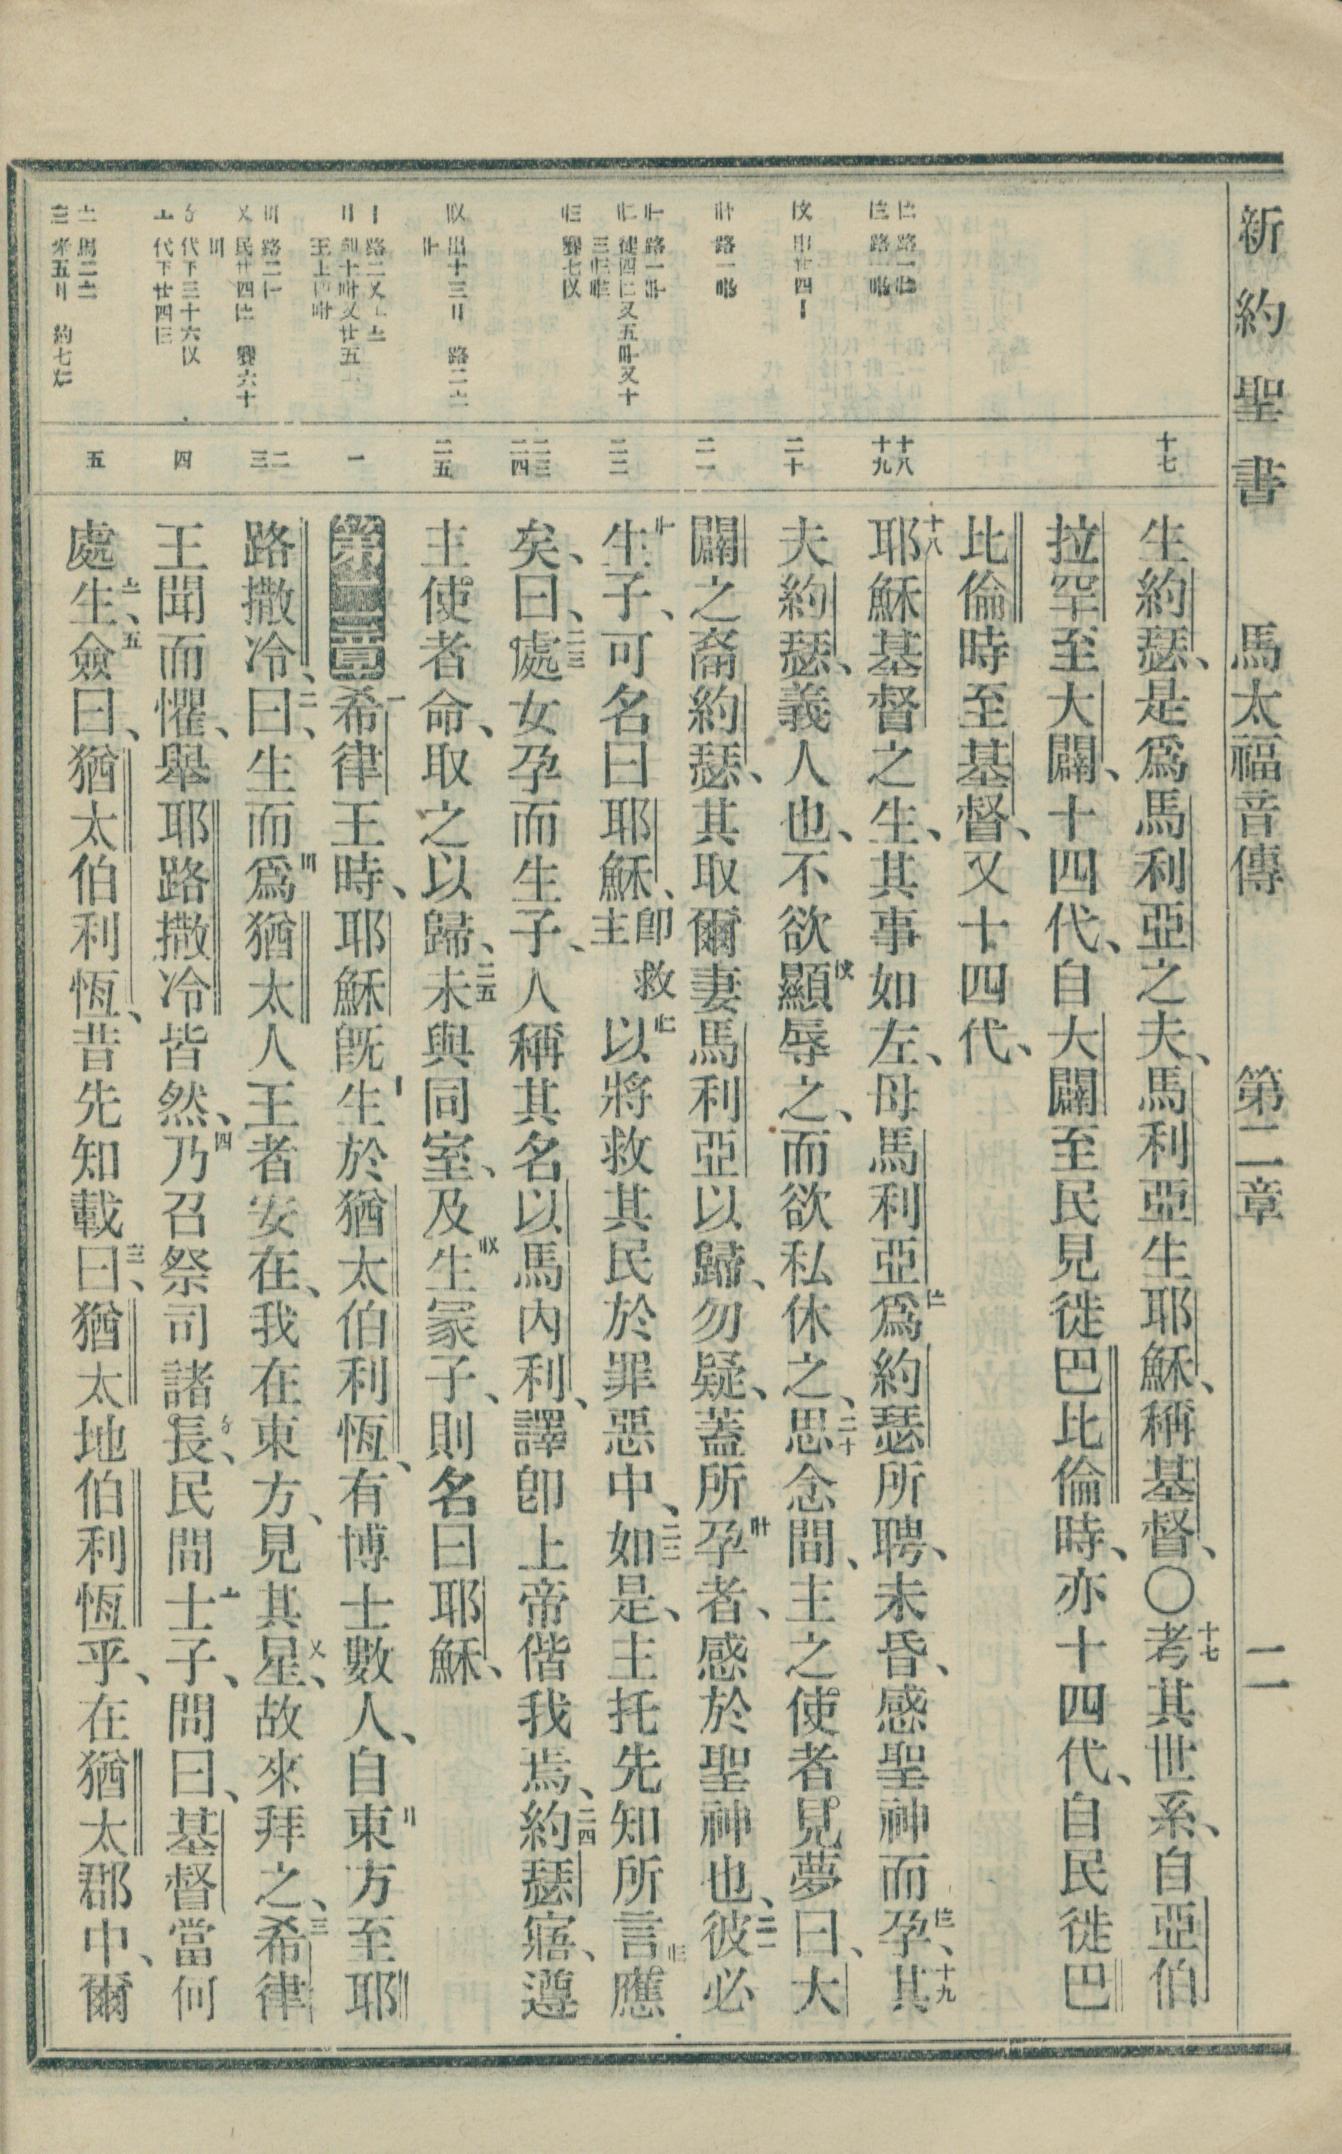 新約聖書 馬太福音傳 第二章 二
十七
生約瑟、是爲馬利亞之夫、馬利亞生耶穌、稱基督、〇十七考其世系、自亞伯
拉罕至大闢、十四代、自大闢至民見徙巴比倫時、亦十四代、自民徙巴
比倫時至基督、又十四代、
十八
十九
十八耶穌基督之生、其事如左、母馬利亞爲約瑟所聘、未昏、感聖神而孕、十九其
二十
夫約瑟、義人也、不欲顯辱之、而欲私休之、二十思念間、主之使者見夢曰、大
二一
闢之裔約瑟、其取爾妻馬利亞以歸、勿疑、蓋所孕者、感於聖神也、二一彼必
二二
生子、可名曰耶穌、卽救主以將救其民於罪惡中、二二如是、主托先知所言應
二三
二四
矣、曰、二三處女孕而生子、人稱其名以馬內利、譯卽上帝偕我焉、二四約瑟寤、遵
二五
主使者命、取之以歸、二五未與同室、及生冢子、則名曰耶穌、
一
第二章 一希律王時、耶穌旣生於猶太伯利恆、有博士數人、自東方至耶
二
三
路撒冷、二曰、生而爲猶太人王者安在、我在東方、見其星、故來拜之、三希律
四
王聞而懼、舉耶路撒冷皆然、四乃召祭司諸長、民間士子、問曰、基督當何
五
處生、五僉曰、猶太伯利恆、昔先知載曰、猶太地伯利恆乎、在猶太郡中、爾